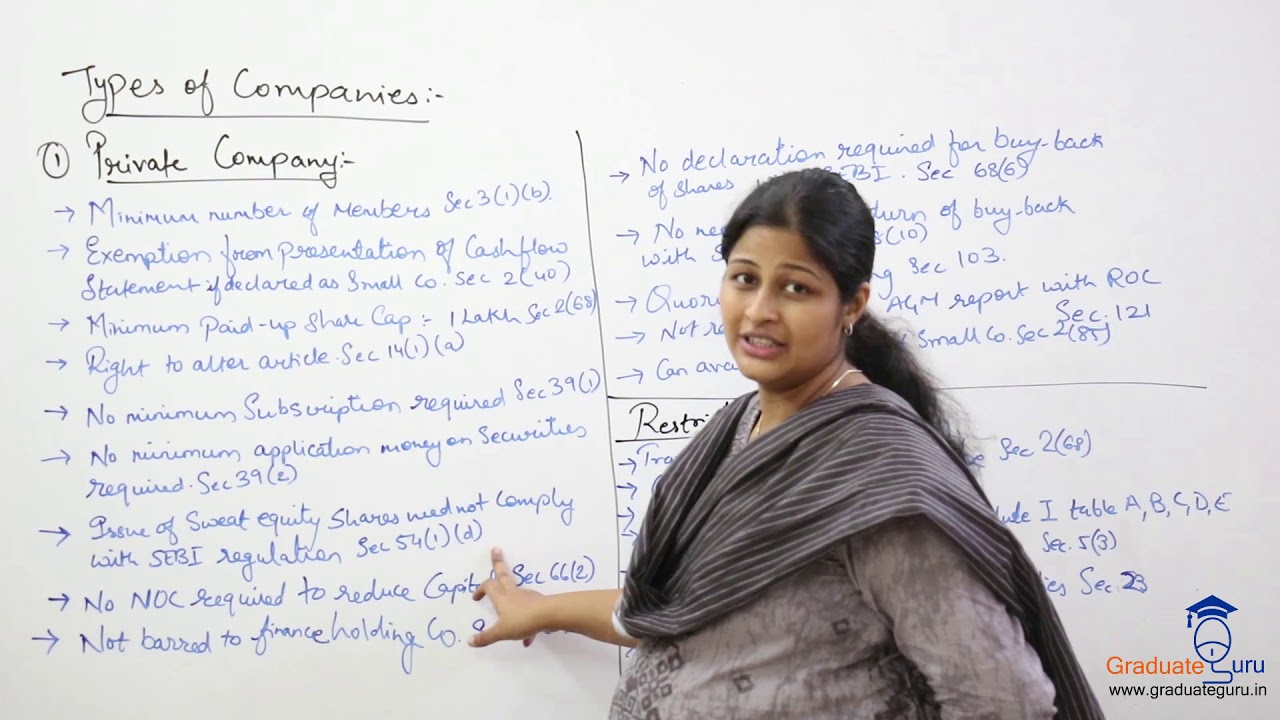 Types of Companies:-
① Private Company:-
→ Minimum number of Members Sec 3(1)(b).
→ Exemption from presentation of Cashflow
Statement if declared as Small Co. Sec 2(40)
→ Minimum Paid-up Share Cap :- 1 Lakh Sec 2(68)
→ Right to alter article. Sec 14(1)(a)
→ No minimum Subscription required Sec 39(1)
→ No minimum application money on Securities
required. Sec 39(2)
→ Issue of Sweat equity Shares need not comply
with SEBI regulation Sec 54(1)(d)
→ No NOC required to reduce Capital Sec 66(2)
→ Not barred to finance holding Co.
→ No declaration required for buy-back
of Shares SEBI. Sec 68(6)
→ No turn of buy-back
with (10)
→ Sec 103.
→ Not AGM report with ROC
Sec. 121
→ Can Small Co. Sec 2(85)
→ Sec 2(68)
I table A, B, C, D, E
Sec. 5(3)
Sec. 23
Graduate Guru
www.graduateguru.in